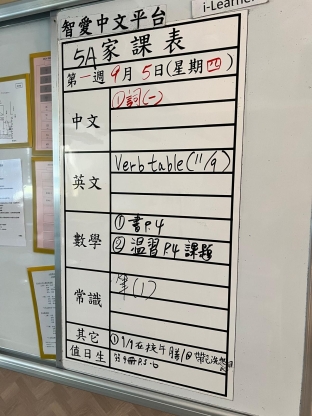 智愛中文平台
i-Learner
5A家課表
第一週9月5日(星期四)
中文
①詞(一)
英文
Verb table(11/9)
數學
①書P.4
②温習P.4課題
常識
(1)
其它
①9/9在校午膳
值日生